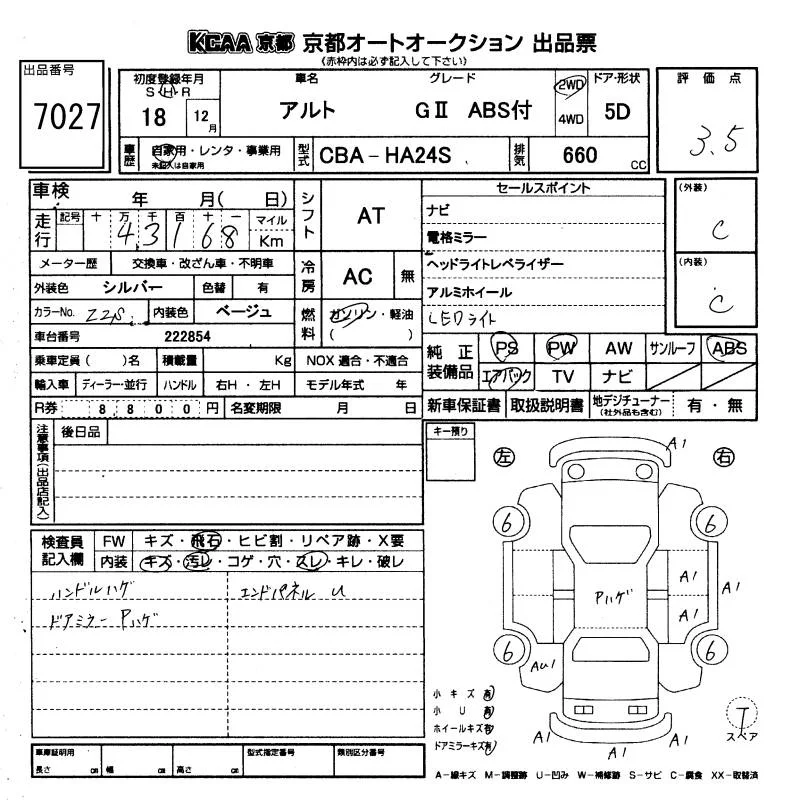 KCAA 京都 京都オートオークション 出品票
(赤枠内は必ず記入して下さい)
出品番号
7027
初度登録年月
S・H・R
18
12
月
車名
アルト
グレード
GⅡ ABS付
2WD
4WD
ドア・形状
5D
評価点
3.5
車歴
自家用・レンタ・事業用
未記入は自家用
型式
CBA-HA24S
排気
660
CC
車検
年 月( 日)
シフト
AT
セールスポイント
ナビ
電格ミラー
ヘッドライトレベライザー
アルミホイール
LEDライト
(外装)
C
(内装)
C
走行
記号 十 万 千 百 十 一 マイル
43168
Km
メーター歴 交換車・改ざん車・不明車
冷房
AC
無
外装色 シルバー 色替 有
カラーNo. Z2S 内装色 ベージュ
燃料
ガソリン・軽油
( )
車台番号 222854
純正装備品
PS PW AW サンルーフ ABS
エアバック TV ナビ
乗車定員( )名 積載量 Kg NOX 適合・不適合
輸入車 ディーラー・並行 ハンドル 右H・左H モデル年式 年
R券 8800円 名変期限 月 日
新車保証書 取扱説明書 地デジチューナー (社外品も含む) 有・無
注意事項(出品店記入)
後日品
キー預り
左 右
A1
6 6
A1
A1
A1
Pハゲ
6 6
AU1
A1
A1
A1
T
スペア
検査員記入欄
FW キズ・飛石・ヒビ割・リペア跡・X要
内装 キズ・汚レ・コゲ・穴・スレ・キレ・破レ
ハンドルハゲ
エンドパネル U
ドアミラー Pハゲ
小キズ有
小U有
ホイールキズ有
ドアミラーキズ有
車庫証明用
長さ cm 幅 cm 高さ cm
型式指定番号
類別区分番号
A-線キズ M-調整跡 U-凹み W-補修跡 S-サビ C-腐食 XX-取替済